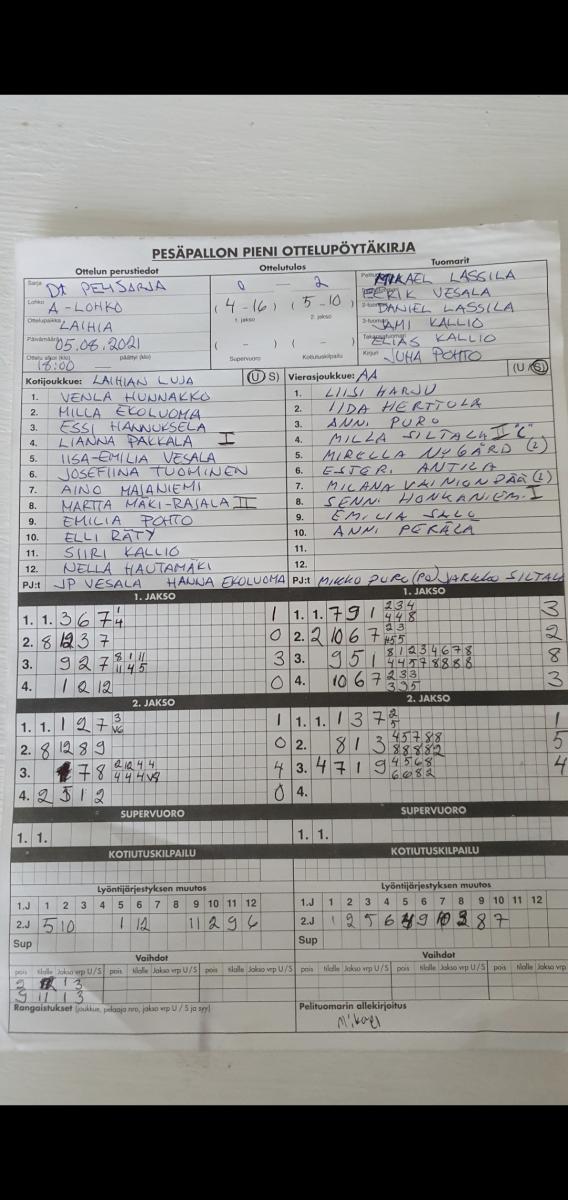 PESÄPALLON PIENI OTTELUPÖYTÄKIRJA
Ottelun perustiedot Ottelutulos Tuomarit
Sarja
Lohko A-LOHKO
Ottelupaikka LAIHIA
05.08.2021
18:00 päättyi (klo)
0 — 2
(4-16) (5-10)
1. jakso 2. jakso
( - ) ( - )
Supervuoro Kotiutuskilpailu
MIKAEL LASSILA
EERIK VESALA
DANIEL LASSILA
JAMI KALLIO
ELIAS KALLIO
Kirjuri JUHA POHTO
Kotijoukkue: LAIHIAN LUJA (U S)
1. VENLA HUNNAKKO
2. MILLA EKOLUOMA
3. ESSI HANNUKSELA
4. LIANNA PAKKALA I
5. IISA-EMILIA VESALA
6. JOSEFIINA TUOMINEN
7. AINO MAJANIEMI
8. MARTTA MÄKI-RAJALA II
9. EMILIA POHTO
10. ELLI RÄTY
11. SIIRI KALLIO
12. NELLA HAUTAMÄKI
PJ:t JP VESALA HANNA EKOLUOMA
Vierasjoukkue: AA (U S)
1. LIISI HARJU
2. IIDA HERTTULA
3. ANNI PURO
4. MILLA SILTALA II "C"
5. MIRELLA NYGÅRD (2)
6. ESTERI ANTILA
7. MILANA VAINIONPÄÄ (2)
8. SENNI HONKANIEMI I
9. EMILIA SALO
10. ANNI PERÄLÄ
11.
12.
PJ:t MIKKO PURO (PJ) JARKKO SILTALA
1. JAKSO
1. 1. 3 6 7 1 4 1
2. 8 12 3 7 0
3. 9 2 7 8 1 11 11 4 5 3
4. 1 2 12 0
1. JAKSO
1. 1. 7 9 1 2 3 4 4 4 8 3
2. 2 10 6 7 2 3 2
3. 9 5 1 8 1 2 3 4 6 7 8 4 4 5 7 8 8 8 8 8
4. 10 6 7 2 3 3 3 3 5 3
2. JAKSO
1. 1. 1 2 7 3 1
2. 8 12 8 9 0
3. 7 8 2 12 4 4 4
4. 2 5 1 2 0
2. JAKSO
1. 1. 1 3 7 2 5 1
2. 8 1 3 4 5 7 8 8 8 8 8 8 2 5
3. 4 7 1 9 4 5 6 8 6 6 8 2 4
4.
SUPERVUORO
1. 1.
SUPERVUORO
1. 1.
KOTIUTUSKILPAILU
KOTIUTUSKILPAILU
Lyöntijärjestyksen muutos
1.J 1 2 3 4 5 6 7 8 9 10 11 12
2.J 5 10 1 12 11 2 9 6
Sup
Lyöntijärjestyksen muutos
1.J 1 2 3 4 5 6 7 8 9 10 11 12
2.J 1 2 5 6 9 8 7
Sup
Vaihdot
pois tilalle Jakso vrp U/S pois tilalle Jakso vrp U/S pois tilalle Jakso vrp U/S
9 11 1 3
Vaihdot
pois tilalle Jakso vrp U/S pois tilalle Jakso vrp U/S pois tilalle Jakso vrp
Rangaistukset (joukkue, pelaaja nro, jakso vrp U / S ja syy)
Pelituomarin allekirjoitus
Mikael